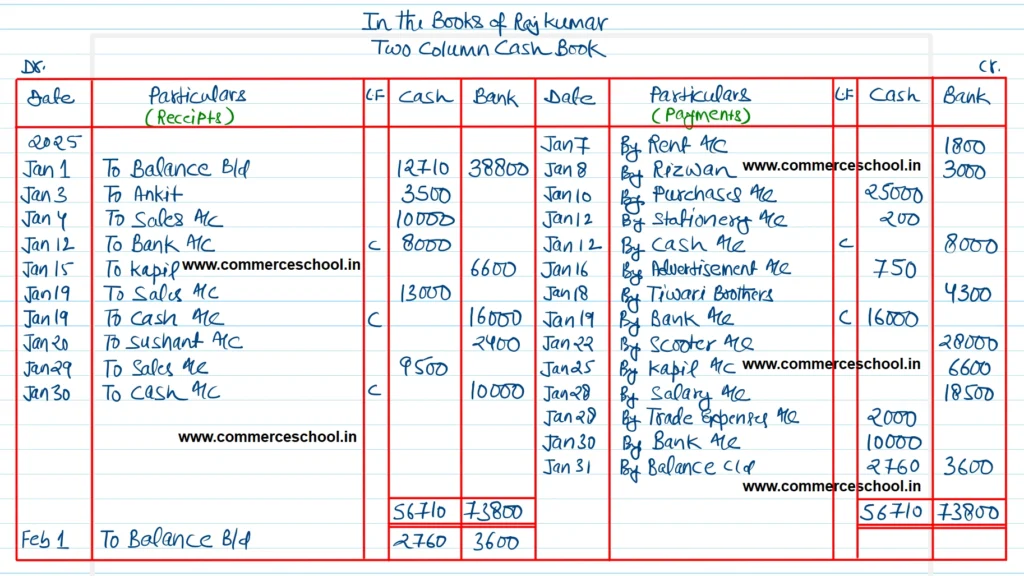 In the Books of Rajkumar
Two Column Cash Book
Dr. Cr.
Date Particulars L.F Cash Bank Date Particulars L.F Cash Bank
(Receipts) (Payments)
2025 Jan 7 By Rent A/c 1800
Jan 1 To Balance B/d 12710 38800 Jan 8 By Rizwan www.commerceschool.in 3000
Jan 3 To Ankit 3500 Jan 10 By Purchases A/c 25000
Jan 4 To Sales A/c 10000 Jan 12 By Stationery A/c 200
Jan 12 To Bank A/c C 8000 Jan 12 By Cash A/c C 8000
Jan 15 To Kapil www.commerceschool.in 6600 Jan 16 By Advertisement A/c 750
Jan 19 To Sales A/c 13000 Jan 18 By Tiwari Brothers 4300
Jan 19 To Cash A/c C 16000 Jan 19 By Bank A/c C 16000
Jan 20 To Sushant A/c 2400 Jan 22 By Scooter A/c 28000
Jan 29 To Sales A/c 9500 Jan 25 By Kapil A/c www.commerceschool.in 6600
Jan 30 To Cash A/c C 10000 Jan 28 By Salary A/c 18500
Jan 28 By Trade Expenses A/c 2000
www.commerceschool.in Jan 30 By Bank A/c 10000
Jan 31 By Balance c/d 2760 3600
www.commerceschool.in
56710 73800 56710 73800
Feb 1 To Balance B/d 2760 3600